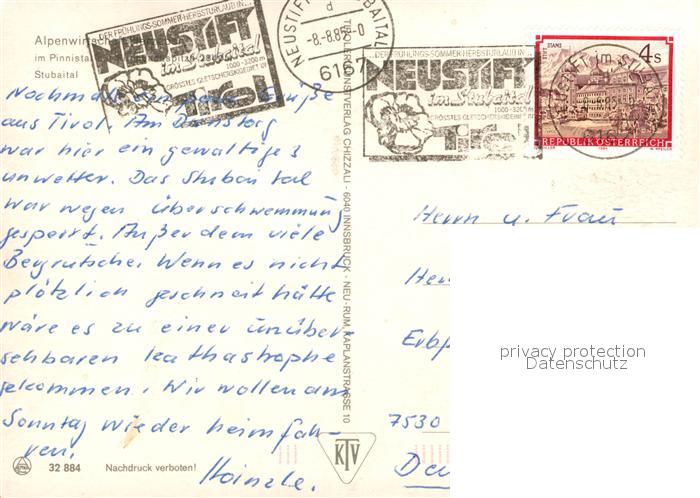 Alpenwirtschaft
im Pinnistal
Stubaital
DER FRÜHLINGS-SOMMER-HERBSTURLAUB IN...
NEUSTIFT
im Stubaital
1000-3200 m
GRÖSSTES GLETSCHERSKIGEBIET
Tirol
NEUSTIFT STUBAITAL
d
-8.-8.85-0
6167
...DER FRÜHLINGS-SOMMER-HERBSTURLAUB IN...
NEUSTIFT
im Stubaital
1000-3200 m
GRÖSSTES GLETSCHERSKIGEBIET
Tirol
STIFT STAMS
4 S
REPUBLIK ÖSTERREICH
Nochmals Grüße
aus Tirol. Am Dienstag
war hier ein gewaltiges
unwetter. Das Stubaital
war wegen überschwemmung
gesperrt. Außer dem viele
Bergrutsche. Wenn es nicht
plötzlich geschneit hätte
wäre es zu einer unüber-
sehbaren kathastrophe
gekommen. Wir wollen am
Sonntag wieder heimfah-
ren.
Heinzle.
TIROLER KUNSTVERLAG CHIZZALI - 6040 INNSBRUCK - NEU-RUM, KAPLANSTRASSE 10
Herrn u. Frau
7530
KTV
32 884 Nachdruck verboten!
privacy protection
Datenschutz